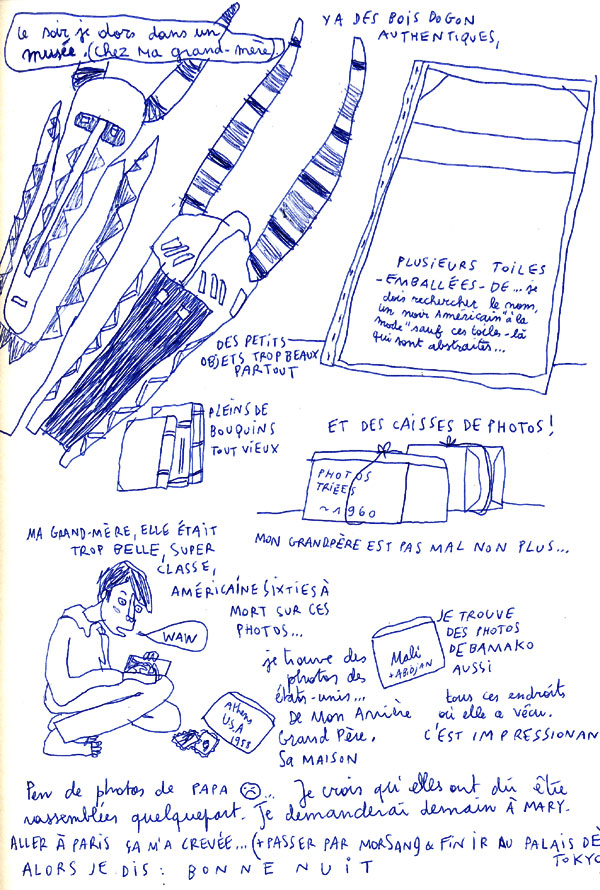 le soir je dors dans un
musée. (chez ma grand-mère)
YA DES BOIS DOGON
AUTHENTIQUES,
PLUSIEURS TOILES
-EMBALLÉES-DE... je
dois rechercher le nom,
un noir Américain "à la
mode" sauf ces toiles-là
qui sont abstraites...
DES PETITS
OBJETS TROP BEAUX
PARTOUT
PLEINS DE
BOUQUINS
TOUT VIEUX
ET DES CAISSES DE PHOTOS!
PHOTOS
TRIEES
~1960
MA GRAND-MÈRE, ELLE ÉTAIT
TROP BELLE, SUPER
CLASSE,
AMÉRICAINE SIXTIES À
MORT SUR CES
PHOTOS...
MON GRANDPÈRE EST PAS MAL NON PLUS...
WAW
je trouve des
photos des
états-unis...
DE Mon Arrière
Grand Père.
SA MAISON
Athens
U.S.A
1958
Mali
+ABDJAN
JE TROUVE
DES PHOTOS
DE BAMAKO
AUSSI
tous ces endroits
où elle a vécu.
C'EST IMPRESSIONAN
Peu de photos de PAPA ... Je crois qu'elles ont dû être
rassemblées quelquepart. Je demanderai demain à MARY.
ALLER À PARIS ÇA M'A CREVÉE... (+PASSER PAR MORSANG & FINIR AU PALAIS DE
TOKYO
ALORS JE DIS: BONNE NUIT